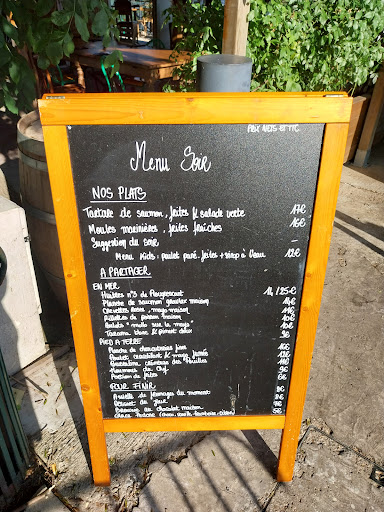 PRIX NETS ET TTC
Menu Soir
NOS PLATS
Tartare de saumon, frites & salade verte 17€
Moules marinières, frites fraîches 16€
Suggestion du soir -
Menu Kids: poulet pané frites + sirop à l'eau 12€
A PARTAGER
EN MER
Huîtres n°3 de 14/25€
Planche de saumon gravlax maison 14€
Crevettes roses, mayo maison
Rillettes de poisson maison
Bulots "mells sur la mayo" 10€
Tarama blanc & piment doux 9€
PIED A TERRE
Planche de charcuteries fines 16€
Poulet croustillant & mayo
Houmous du Chef 9€
Portion de frites 6€
POUR FINIR
Assiette de fromages du moment
Dessert du jour
Brownie au chocolat maison
Glace